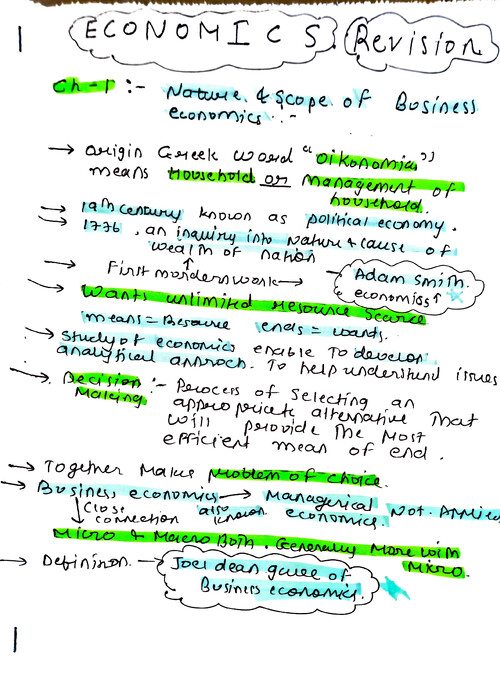 ECONOMICS. Revision
Ch-1 :- Nature & Scope of Business
economics :-
→ origin Greek word "oikonomia"
means Household or Management of
household.
→ 19th century known as political economy.
→ 1776, an inquiry into Nature & cause of
wealth of nation
→ First mordern work → Adam Smith.
economist
→ Wants unlimited resource Scarce
means = Resource ends = wants.
→ Study of economics enable To develop
analytical approch. To help understand issues
→ Decision :- Process of selecting an
Making appropriate alternative That
will provide The Most
efficient mean of end.
→ Together Makes problem of choice.
→ Business economics → Managerial Not Applied
↓ Close also known economics.
connection
Micro & Macro Both. Generally More with
Micro
→ Definition → Joel dean guree of
Business economics.